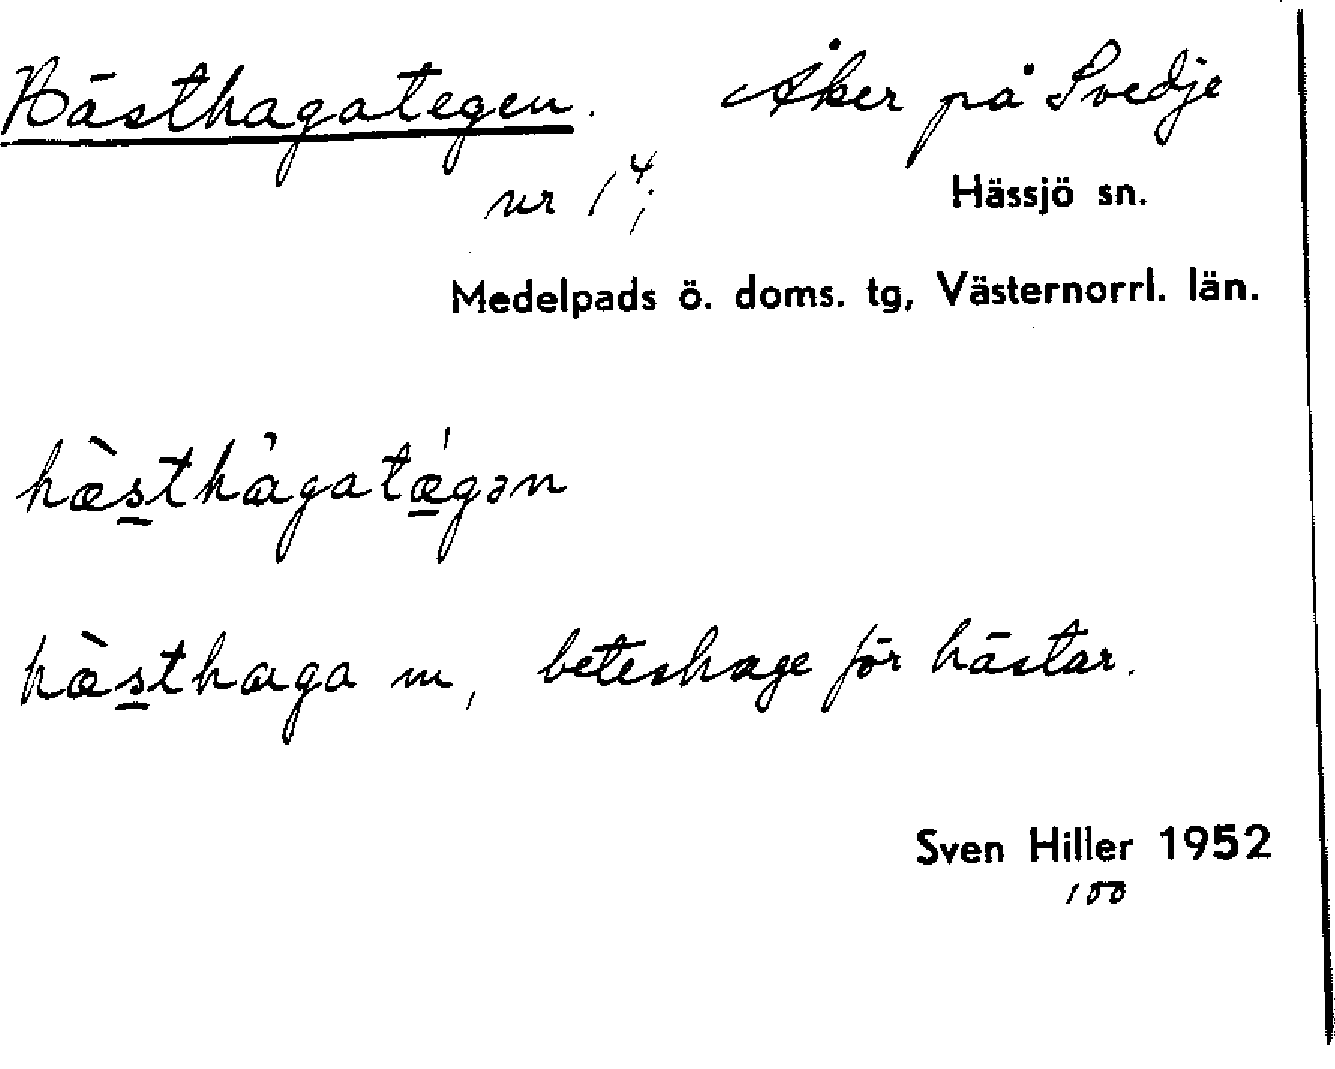 Hästhagategen. Åker på Svedje
nr 1⁴;
Hässjö sn.
Medelpads ö. doms. tg, Västernorrl. län.
hæ̀sthàgatæ̀gən
hæ̀sthaga m, beteshage för hästar.
Sven Hiller 1952
100